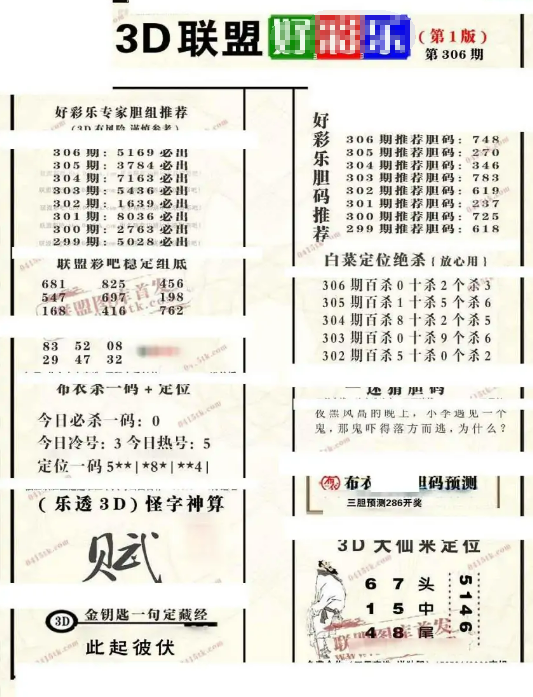 3D联盟好彩乐(第1版)
第306期
好彩乐专家胆组推荐
(3D有风险 谨慎参考)
306期: 5169必出
305期: 3784必出
304期: 7163必出
303期: 5436必出
302期: 1639必出
301期: 8036必出
300期: 2763必出
299期: 5028必出
联盟彩吧稳定组底
681 825 456
547 697 198
168 416 762
83 52 08
29 47 32
布衣杀一码+定位
今日必杀一码: 0
今日冷号: 3 今日热号: 5
定位一码5**|*8*|**4|
(乐透3D)怪字神算
贝武
3D 金钥匙一句定藏经
此起彼伏
好彩乐胆码推荐
306期推荐胆码: 748
305期推荐胆码: 270
304期推荐胆码: 346
303期推荐胆码: 783
302期推荐胆码: 619
301期推荐胆码: 237
300期推荐胆码: 725
299期推荐胆码: 618
白菜定位绝杀{放心用}
306期百杀0十杀2个杀3
305期百杀1十杀5个杀6
304期百杀8十杀2个杀5
303期百杀0十杀9个杀6
302期百杀5十杀0个杀2
一谜猜胆码
夜黑风高的晚上,小李遇见一个
鬼,那鬼吓得落方而逃,为什么?
布衣 胆码预测
三胆预测286开奖
3D大仙来定位
6 7 头
1 5 中
4 8 尾
5146
联盟图库首发
0415tk.com